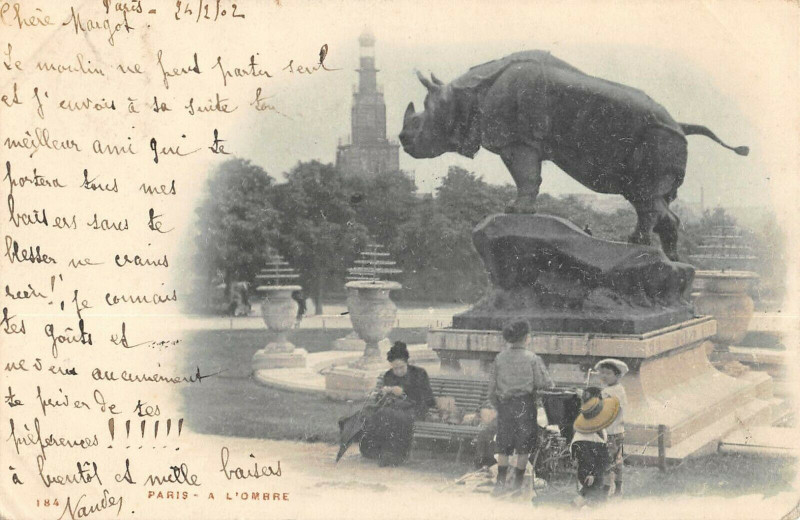 Paris - 24/2/02
Chère Margot.
Le moulin ne peut partir seul
et j'envois à sa suite ton
meilleur ami qui te
portera tous mes
baisers sans te
blesser ne crains
rien !, je connais
tes goûts et
ne veux aucunément
te priver de tes
préferences !!!!!!
à bientôt et mille baisers
184
PARIS - A L'OMBRE